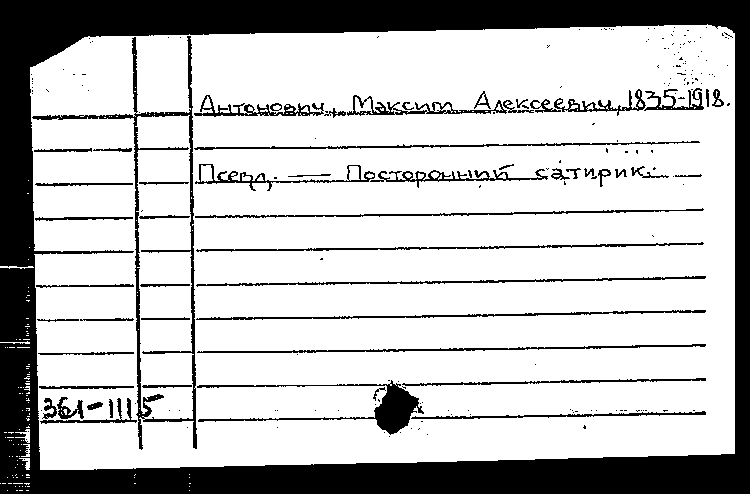 Антонович, Максим Алексеевич, 1835-1918.
Псевд. — Посторонний сатирик.
361-1115